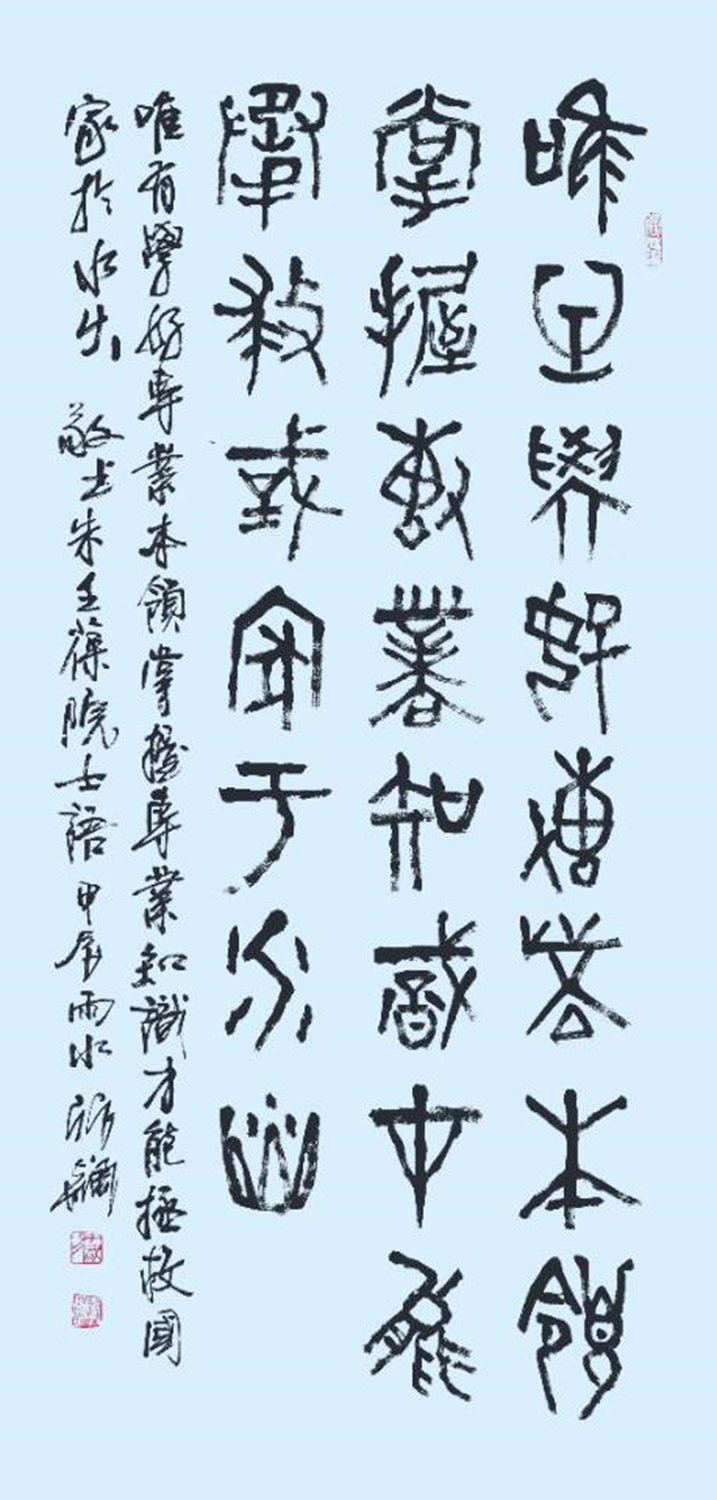 唯有學好專業本領
掌握專業知識才能
拯救國家于水火
唯有學好專業本領掌握專業知識才能拯救國
家於水火 敬書朱壬葆院士語 甲辰雨水